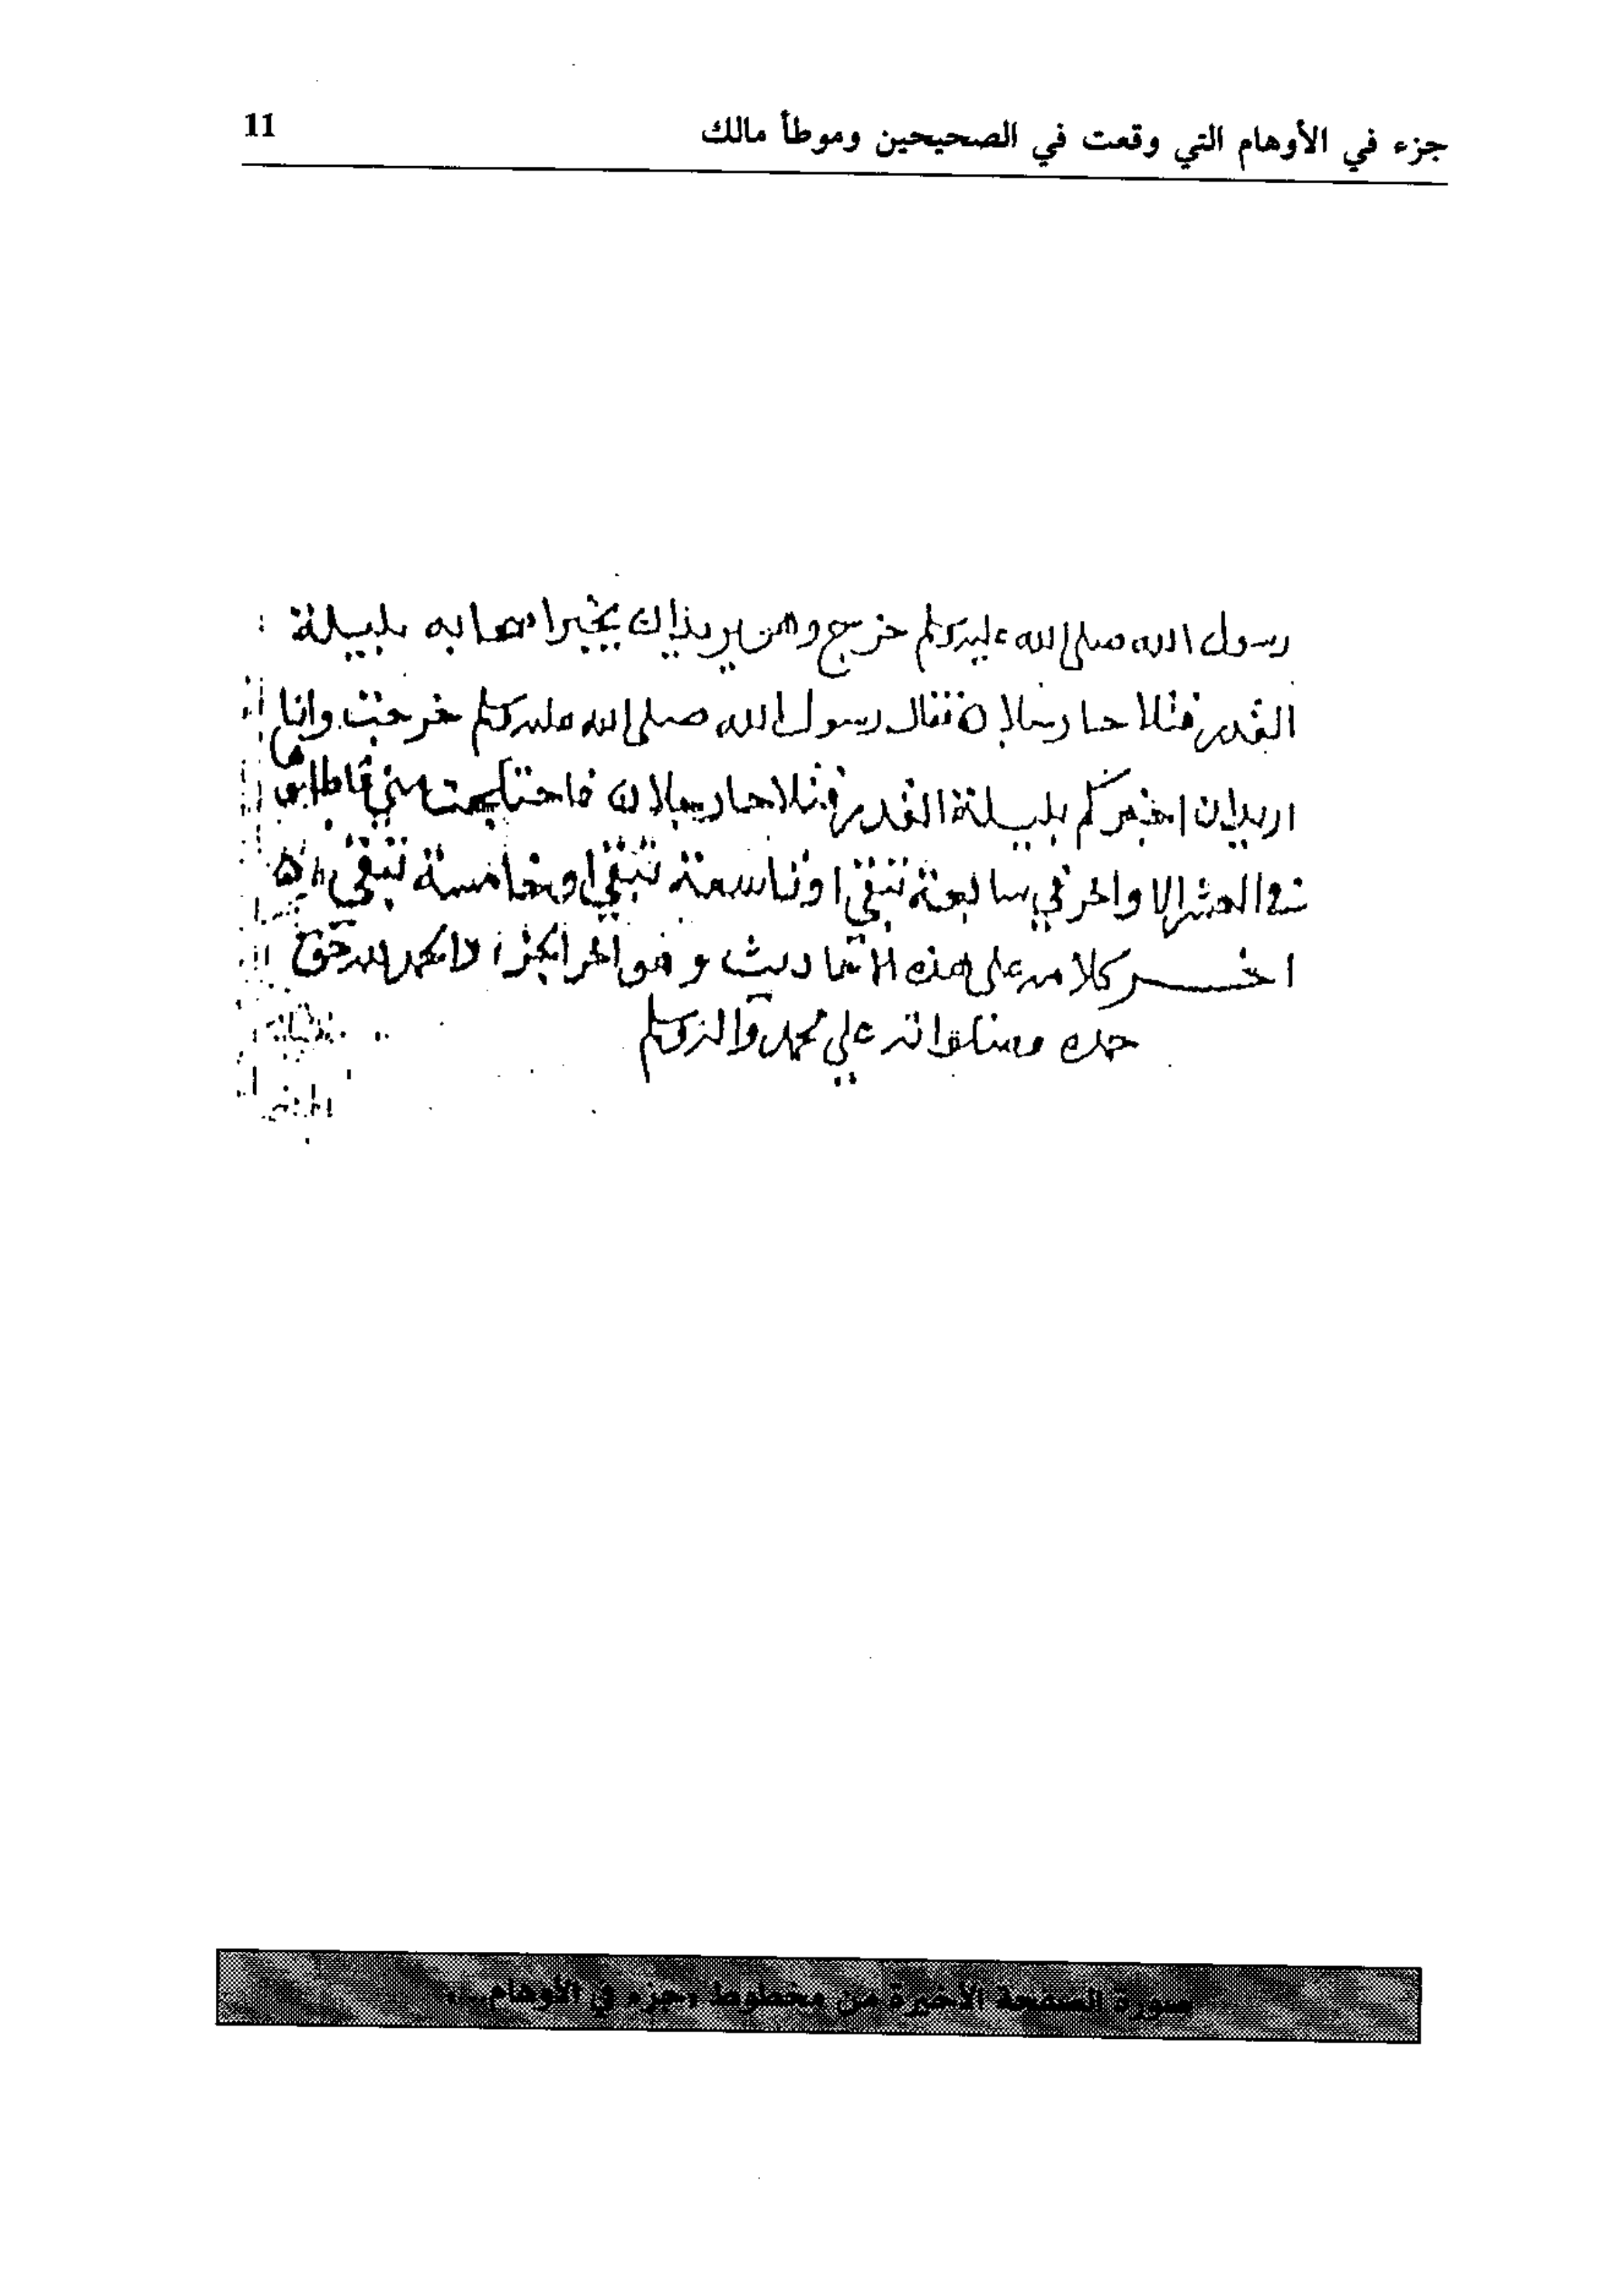 جزء في الأوهام التي وقعت في الصحيحين وموطأ مالك
11
رسول الله صلى الله عليه وسلم خرج وهو يريد ان يخبر اصحابه بليلة
القدر فتلاحا رجلان فقال رسول الله صلى الله عليه وسلم خرجت وانا
اريد ان اخبركم بليلة القدر فتلاحا رجلان فاختلجت مني فاطلبوها
في العشر الاواخر في سابعة تبقى او تاسعة تبقى او خامسة تبقى
اخر كلامه على هذه الاحاديث وهو اخر الجزء والحمد لله حق
حمده وصلواته على محمد وآله وسلم
صورة الصفحة الأخيرة من مخطوط «جزء في الأوهام...»